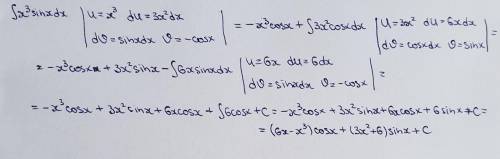 ∫x³sinxdx | u=x³ du=3x²dx dϑ=sinxdx ϑ=-cosx | = -x³cosx + ∫3x²cosxdx | u=3x² du=6xdx dϑ=cosxdx ϑ=sinx | =
= -x³cosx + 3x²sinx - ∫6xsinxdx | u=6x du=6dx dϑ=sinxdx ϑ=-cosx | =
= -x³cosx + 3x²sinx + 6xcosx + ∫6cosx + C = -x³cosx + 3x²sinx + 6xcosx + 6sinx + C =
= (6x-x³)cosx + (3x²+6)sinx + C